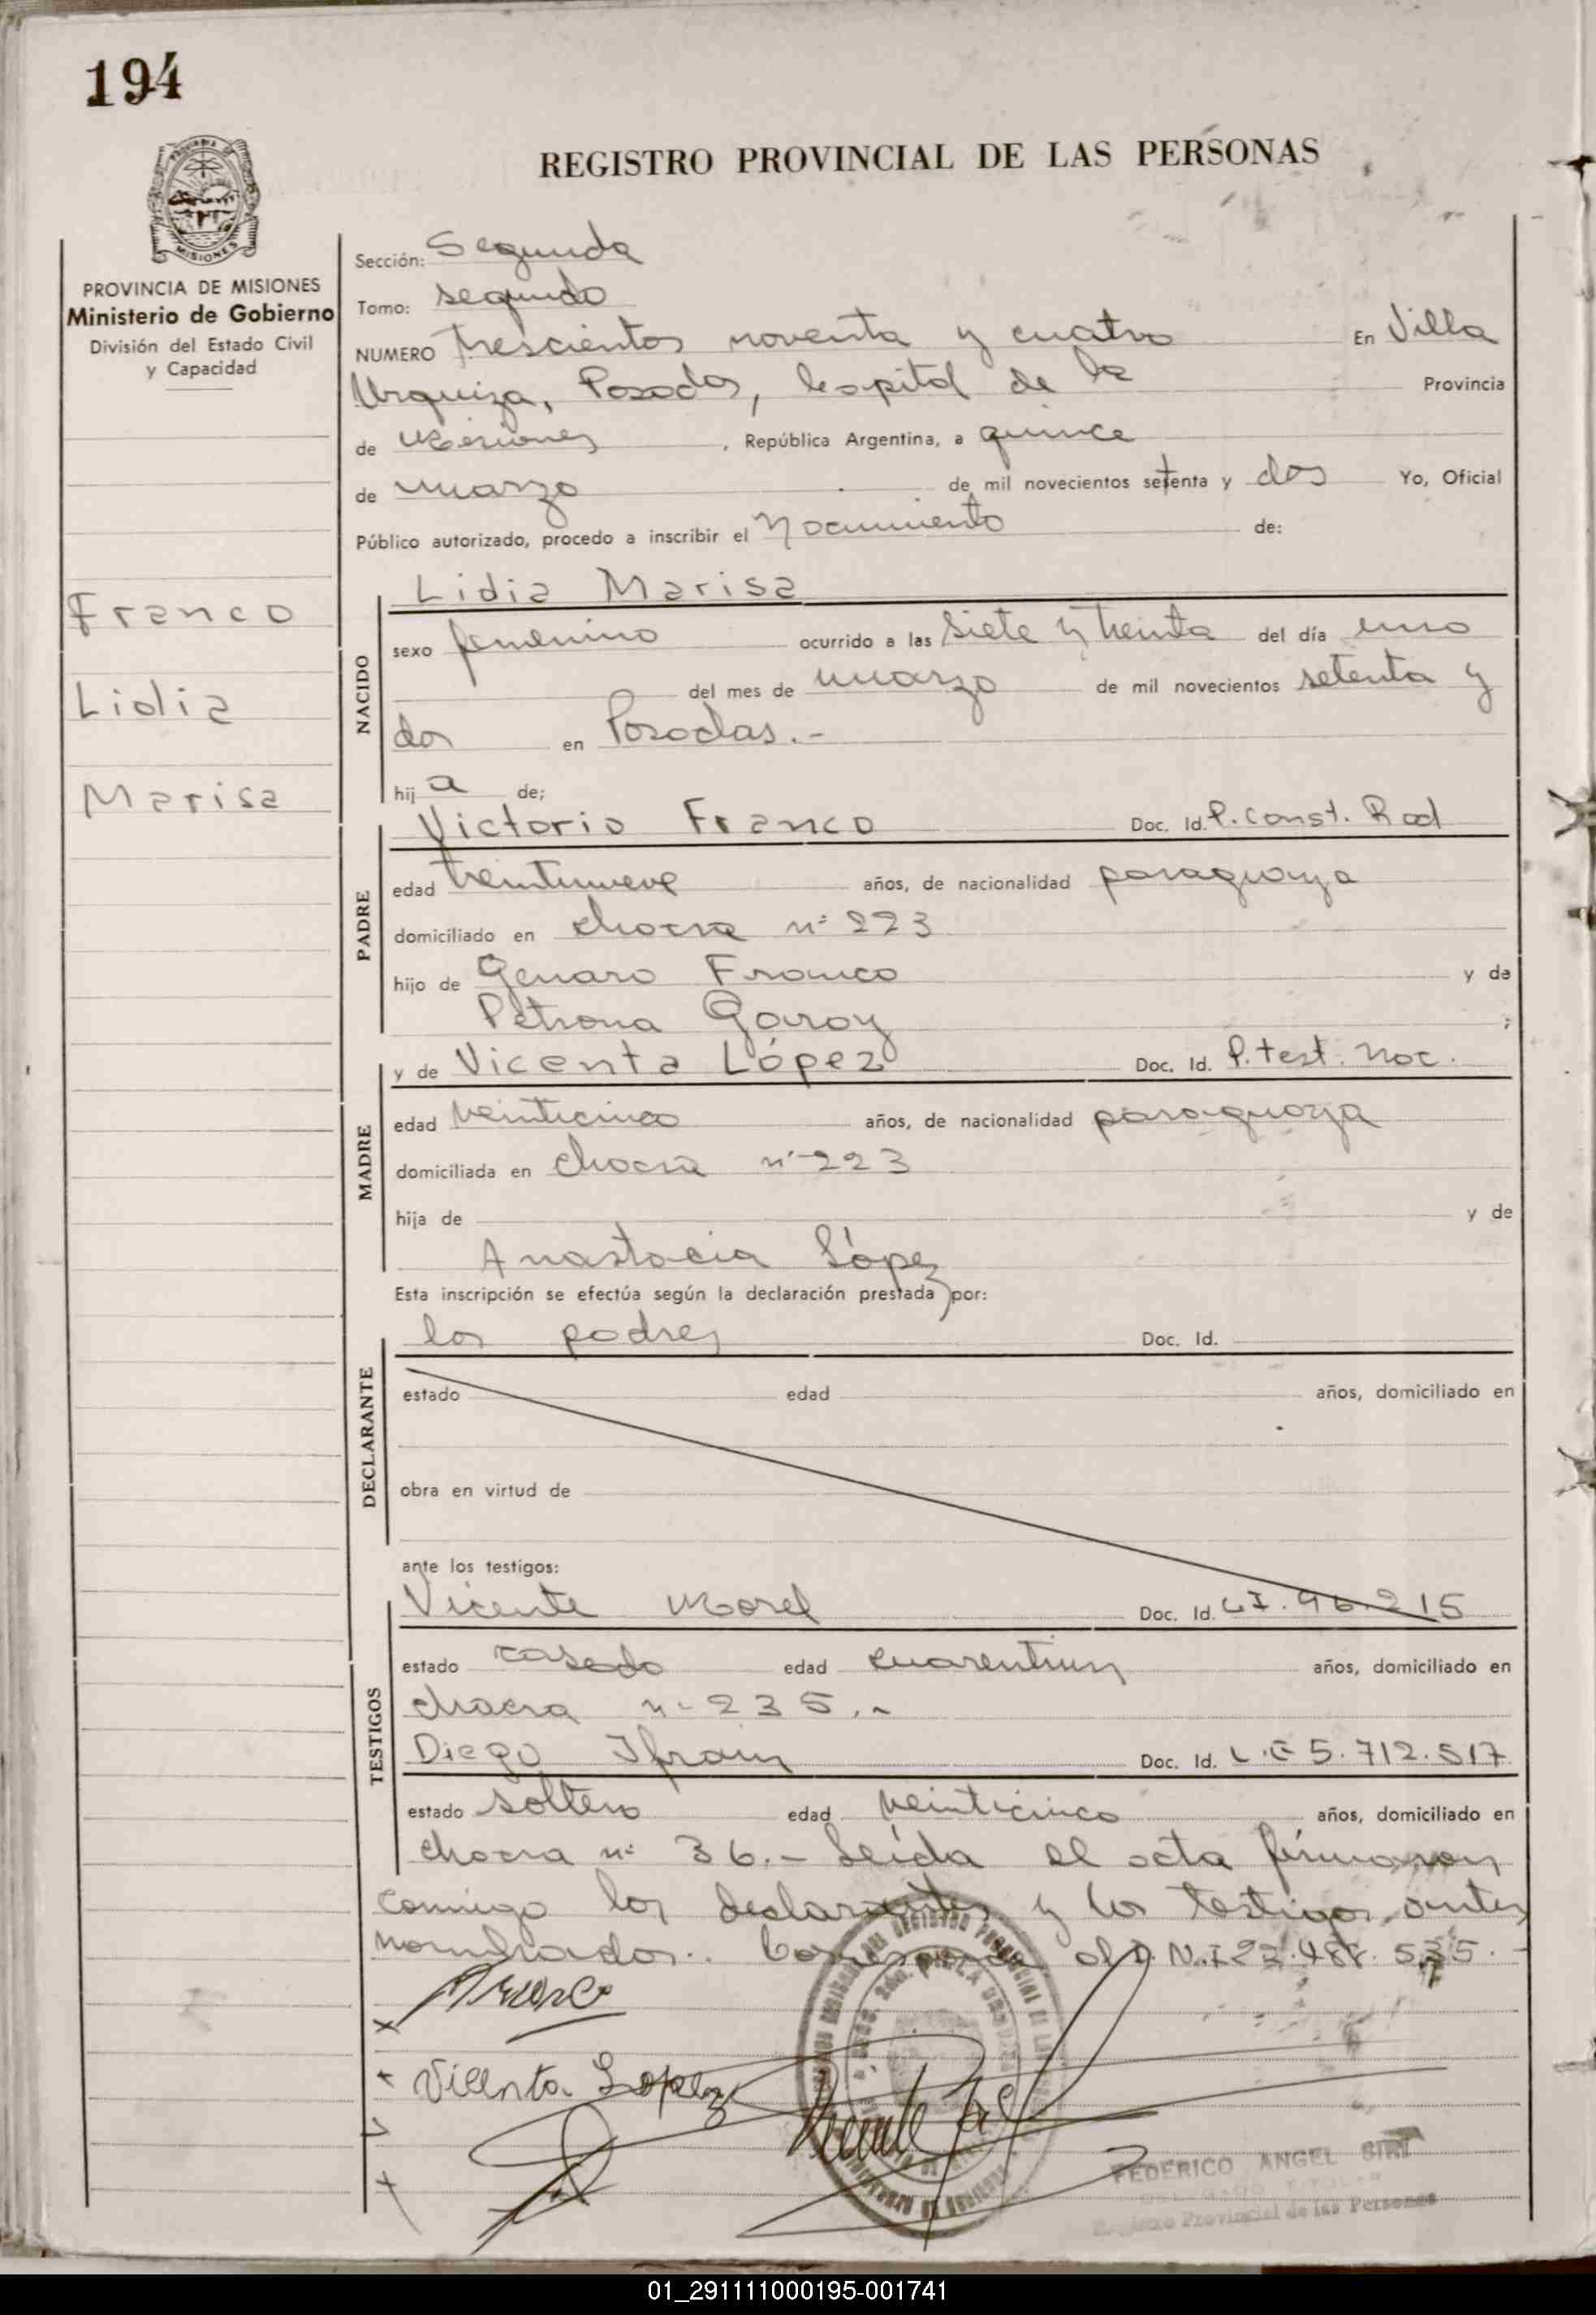 194
REGISTRO PROVINCIAL DE LAS PERSONAS
MISIONES
PROVINCIA DE MISIONES
Ministerio de Gobierno
División del Estado Civil
y Capacidad
Franco
Lidia
Marisa
Sección: Segunda
Tomo: segundo
NUMERO trescientos noventa y cuatro En Villa
Urquiza, Posadas, Capital de la Provincia
de Misiones, República Argentina, a quince
de marzo de mil novecientos setenta y dos Yo, Oficial
Público autorizado, procedo a inscribir el Nacimiento de:
NACIDO
Lidia Marisa
sexo femenino ocurrido a las siete y treinta del día uno
del mes de marzo de mil novecientos setenta y
dos en Posadas.-
hij a de;
PADRE
Victorio Franco Doc. Id. P. Const. Rad
edad treintinueve años, de nacionalidad paraguaya
domiciliado en chacra nº 223
hijo de Genaro Franco y de
Petrona Garay ;
MADRE
y de Vicenta López Doc. Id. P. test. Nac.
edad veinticinco años, de nacionalidad paraguaya
domiciliada en chacra nº 223
hija de y de
Anastacia López
Esta inscripción se efectúa según la declaración prestada por:
DECLARANTE
los padres Doc. Id.
estado edad años, domiciliado en
obra en virtud de
ante los testigos:
TESTIGOS
Vicente Morel Doc. Id. C.I. 96.215
estado casado edad cuarentiun años, domiciliado en
chacra nº 235.-
Diego Ifrain Doc. Id. L.E 5.712.517
estado soltero edad veinticinco años, domiciliado en
chacra nº 36.- Leída el acta firmaron
conmigo los declarantes y los testigos antes
nombrados.. Corresponde al D.N.I 22.488.535.-
Vicenta Lopez
FEDERICO ANGEL SIRI
Registro Provincial de las Personas
01_291111000195-001741